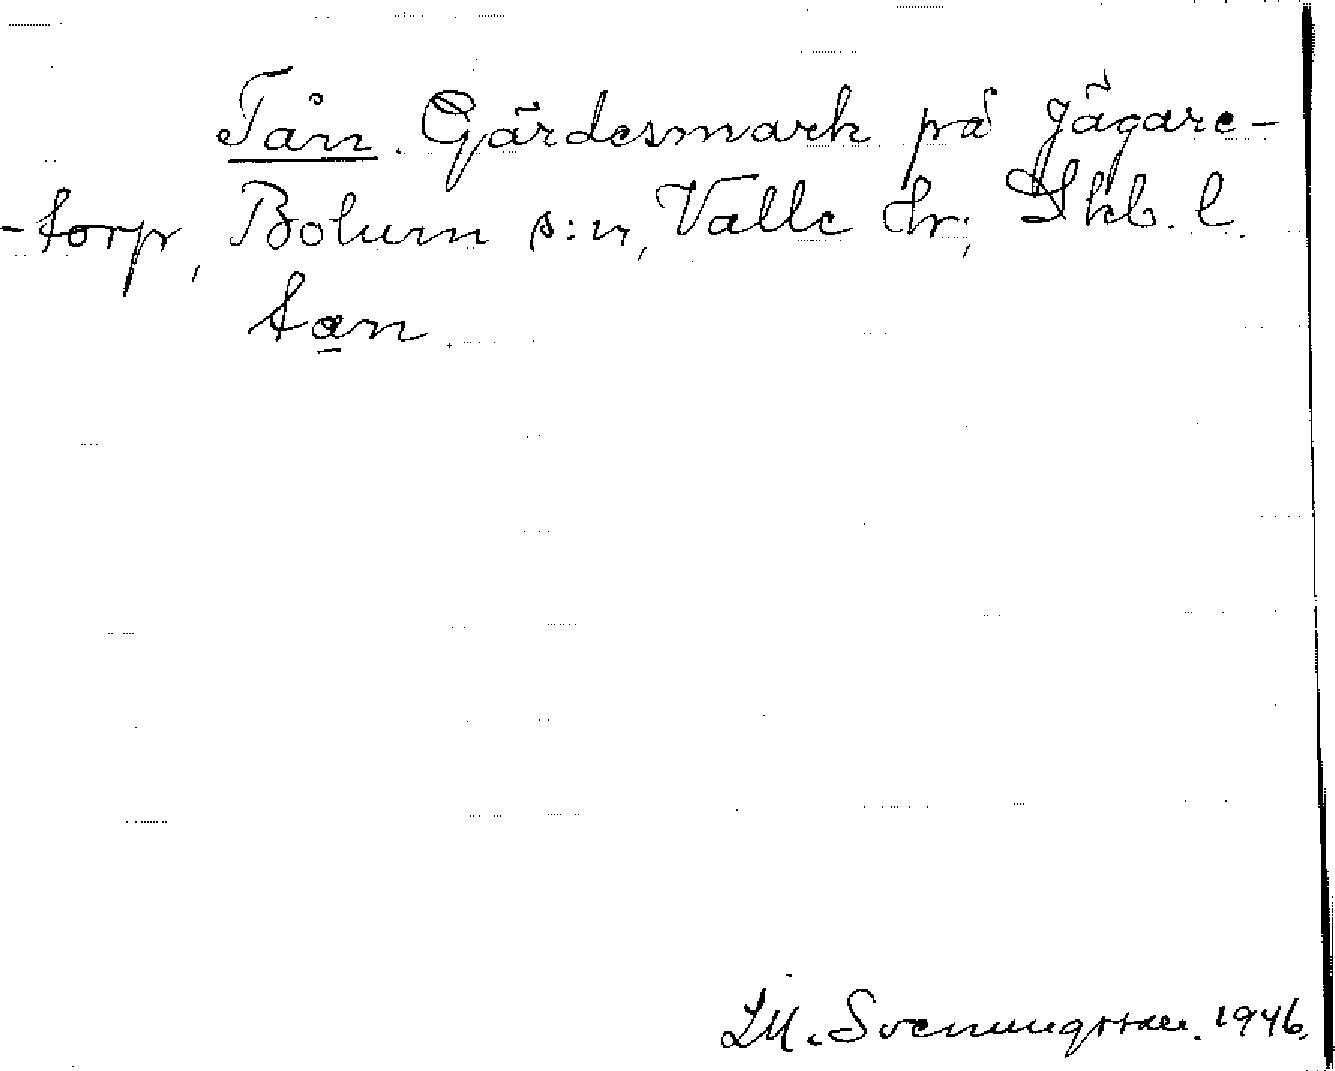 Tån. Gärdesmark på Jägare-
-torp, Bolum s:n, Valle hr; Skb. l.
tan.
M. Svenungsson. 1946.